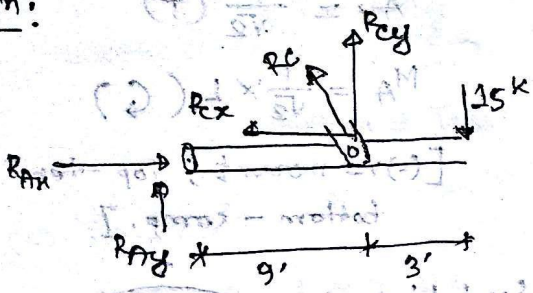 n:
R_Cy
R_C
R_Cx
15^K
R_Ax
R_Ay
9'
3'